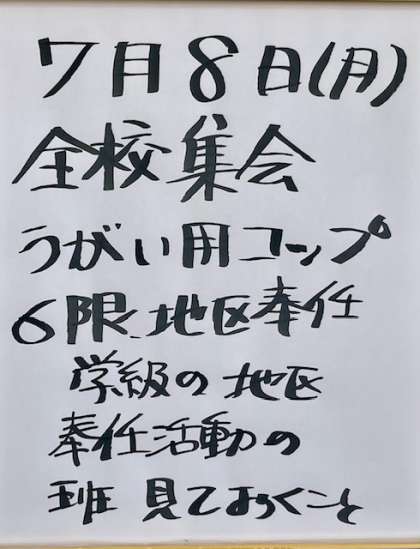 7月8日(月)
全校集会
うがい用コップ
6限、地区奉任
学級の地区
奉任活動の
班見ておくこと